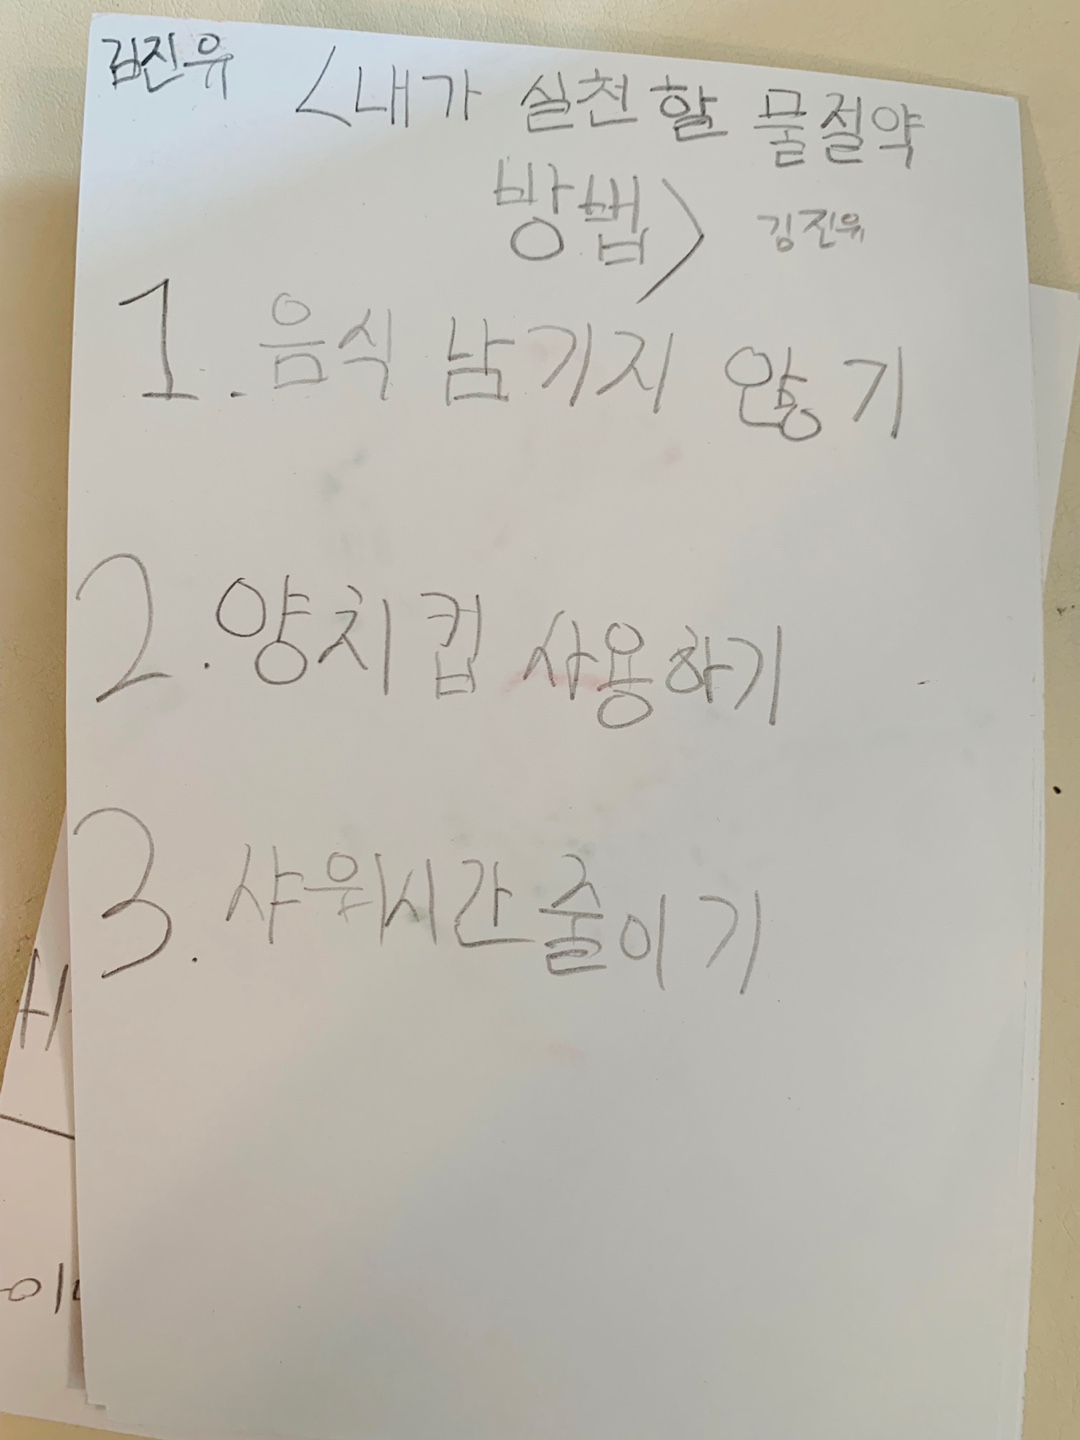 김진유
<내가 실천할 물절약
방법> 김진유
1. 음식 남기지 않기
2. 양치컵 사용하기
3. 샤워시간 줄이기